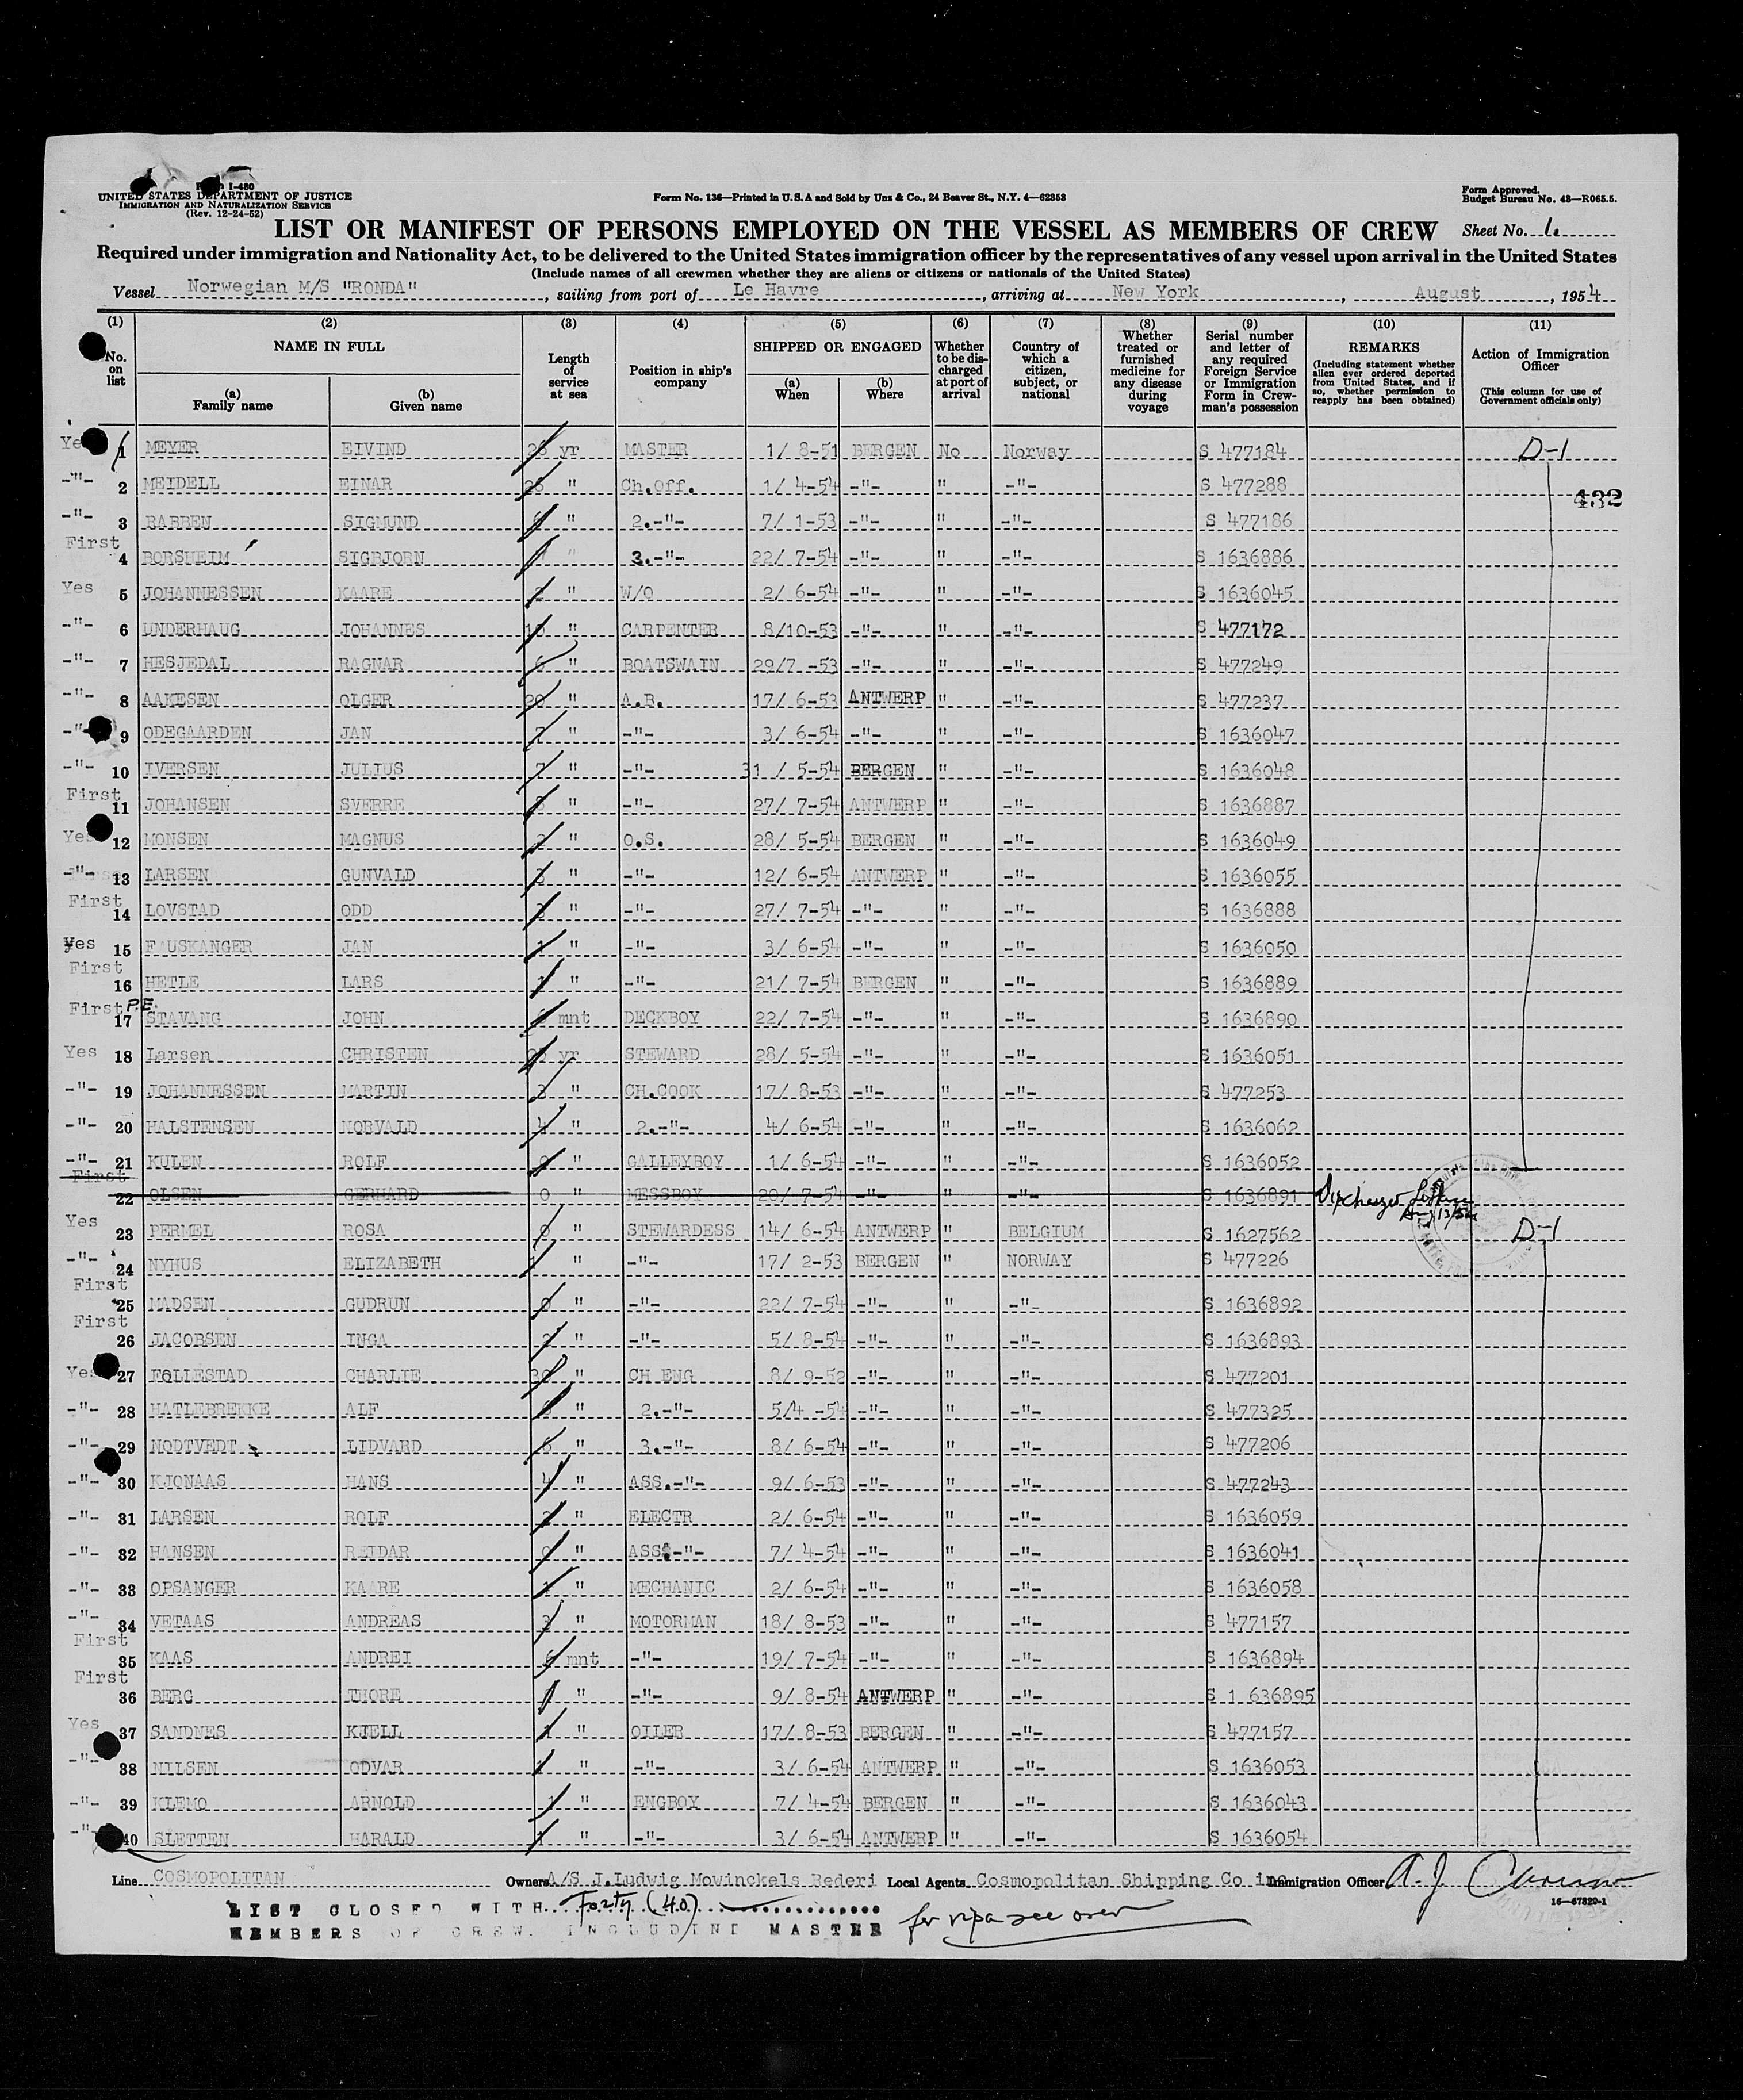 Form I-480
UNITED STATES DEPARTMENT OF JUSTICE
IMMIGRATION AND NATURALIZATION SERVICE
(Rev. 12-24-52)
Form No. 136—Printed in U.S.A and Sold by Unz & Co., 24 Beaver St., N.Y. 4—62353
Form Approved.
Budget Bureau No. 43—R065.5.
LIST OR MANIFEST OF PERSONS EMPLOYED ON THE VESSEL AS MEMBERS OF CREW Sheet No. 1.
Required under immigration and Nationality Act, to be delivered to the United States immigration officer by the representatives of any vessel upon arrival in the United States
(Include names of all crewmen whether they are aliens or citizens or nationals of the United States)
Vessel Norwegian M/S "RONDA", sailing from port of Le Havre, arriving at New York, August, 1954
(1) (2) (3) (4) (5) (6) (7) (8) (9) (10) (11)
No. on list
NAME IN FULL
(a) Family name
(b) Given name
Length of service at sea
Position in ship's company
SHIPPED OR ENGAGED
(a) When
(b) Where
Whether to be discharged at port of arrival
Country of which a citizen, subject, or national
Whether treated or furnished medicine for any disease during voyage
Serial number and letter of any required Foreign Service or Immigration Form in Crewman's possession
REMARKS
(Including statement whether alien ever ordered deported from United States, and if so, whether permission to reapply has been obtained)
Action of Immigration Officer
(This column for use of Government officials only)
Yes 1 MEYER EIVIND yr MASTER 1/ 8-51 BERGEN No Norway S 477184 D-1
-"- 2 MEIDELL EINAR " Ch.Off. 1/ 4-54 -"- " -"- S 477288 432
-"- 3 RABBEN SIGMUND " 2.-"- 7/ 1-53 -"- " -"- S 477186
First 4 BORSHEIM SIGBJORN " 3.-"- 22/ 7-54 -"- " -"- S 1636886
Yes 5 JOHANNESSEN KAARE 2 " W/O 2/ 6-54 -"- " -"- S 1636045
-"- 6 UNDERHAUG JOHANNES " CARPENTER 8/10-53 -"- " -"- S 477172
-"- 7 HESJEDAL RAGNAR 6 " BOATSWAIN 29/7 -53 -"- " -"- S 477249
-"- 8 AAKESEN OLGER 20 " A.B. 17/ 6-53 ANTWERP " -"- S 477237
-"- 9 ODEGAARDEN JAN 7 " -"- 3/ 6-54 -"- " -"- S 1636047
-"- 10 IVERSEN JULIUS 7 " -"- 31 / 5-54 BERGEN " -"- S 1636048
First 11 JOHANSEN SVERRE 8 " -"- 27/ 7-54 ANTWERP " -"- S 1636887
Yes 12 MONSEN MAGNUS 2 " O.S. 28/ 5-54 BERGEN " -"- S 1636049
-"- 13 LARSEN GUNVALD 3 " -"- 12/ 6-54 ANTWERP " -"- S 1636055
First 14 LOVSTAD ODD 3 " -"- 27/ 7-54 -"- " -"- S 1636888
Yes 15 FAUSKANGER JAN 1 " -"- 3/ 6-54 -"- " -"- S 1636050
First 16 HETLE LARS 1 " -"- 21/ 7-54 BERGEN " -"- S 1636889
First P.E. 17 STAVANG JOHN 6 mnt DECKBOY 22/ 7-54 -"- " -"- S 1636890
Yes 18 Larsen CHRISTEN yr STEWARD 28/ 5-54 -"- " -"- S 1636051
-"- 19 JOHANNESSEN MARTIN 3 " CH.COOK 17/ 8-53 -"- " -"- S 477253
-"- 20 HALSTENSEN NORVALD 4 " 2.-"- 4/ 6-54 -"- " -"- S 1636062
-"- 21 KULEN ROLF 0 " GALLEYBOY 1/ 6-54 -"- " -"- S 1636052
First 22 OLSEN GERHARD 0 " MESSBOY 20/ 7-54 -"- " -"- S 1636891 Discharged Le Havre Aug 13/54
Yes 23 PERMEL ROSA 0 " STEWARDESS 14/ 6-54 ANTWERP " BELGIUM S 1627562 D-1
-"- 24 NYHUS ELIZABETH 1 " -"- 17/ 2-53 BERGEN " NORWAY S 477226
First 25 MADSEN GUDRUN 0 " -"- 22/ 7-54 -"- " -"- S 1636892
First 26 JACOBSEN INGA 2 " -"- 5/ 8-54 -"- " -"- S 1636893
Yes 27 FOLLESTAD CHARLIE 30 " CH ENG 8/ 9-52 -"- " -"- S 477201
-"- 28 HATLEBREKKE ALF " 2.-"- 5/4 -54 -"- " -"- S 477325
-"- 29 NODTVEDT LIDVARD 6 " 3.-"- 8/ 6-54 -"- " -"- S 477206
-"- 30 KJONAAS HANS 4 " ASS.-"- 9/ 6-53 -"- " -"- S 477243
-"- 31 LARSEN ROLF 2 " ELECTR 2/ 6-54 -"- " -"- S 1636059
-"- 32 HANSEN REIDAR 0 " ASS.-"- 7/ 4-54 -"- " -"- S 1636041
-"- 33 OPSANGER KAARE 1 " MECHANIC 2/ 6-54 -"- " -"- S 1636058
-"- 34 VETAAS ANDREAS 3 " MOTORMAN 18/ 8-53 -"- " -"- S 477157
First 35 KAAS ANDREI 6 mnt -"- 19/ 7-54 -"- " -"- S 1636894
First 36 BERG THORE " -"- 9/ 8-54 ANTWERP " -"- S 1 636895
Yes 37 SANDNES KJELL 1 " OILER 17/ 8-53 BERGEN " -"- S 477157
-"- 38 NILSEN ODVAR 1 " -"- 3/ 6-54 ANTWERP " -"- S 1636053
-"- 39 KLEMO ARNOLD 1 " ENGBOY 7/ 4-54 BERGEN " -"- S 1636043
-"- 40 SLETTEN HARALD 1 " -"- 3/ 6-54 ANTWERP " -"- S 1636054
Line COSMOPOLITAN Owners A/S J.Ludwig Mowinckels Rederi Local Agents Cosmopolitan Shipping Co inc Immigration Officer A. J.
16—67829-1
LIST CLOSED WITH Forty (40)
MEMBERS OF CREW. INCLUDING MASTER for visa see over